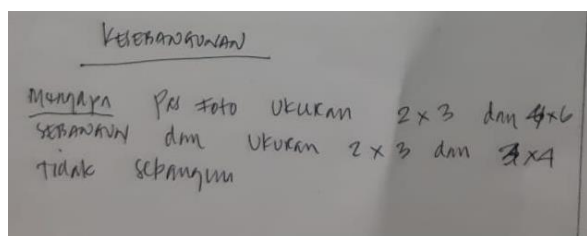 KESEBANGUNAN
Mengapa Pas Foto Ukuran 2 x 3 dan 4x6
SEBANGUN dan Ukuran 2 x 3 dan 3x4
tidak sebangun